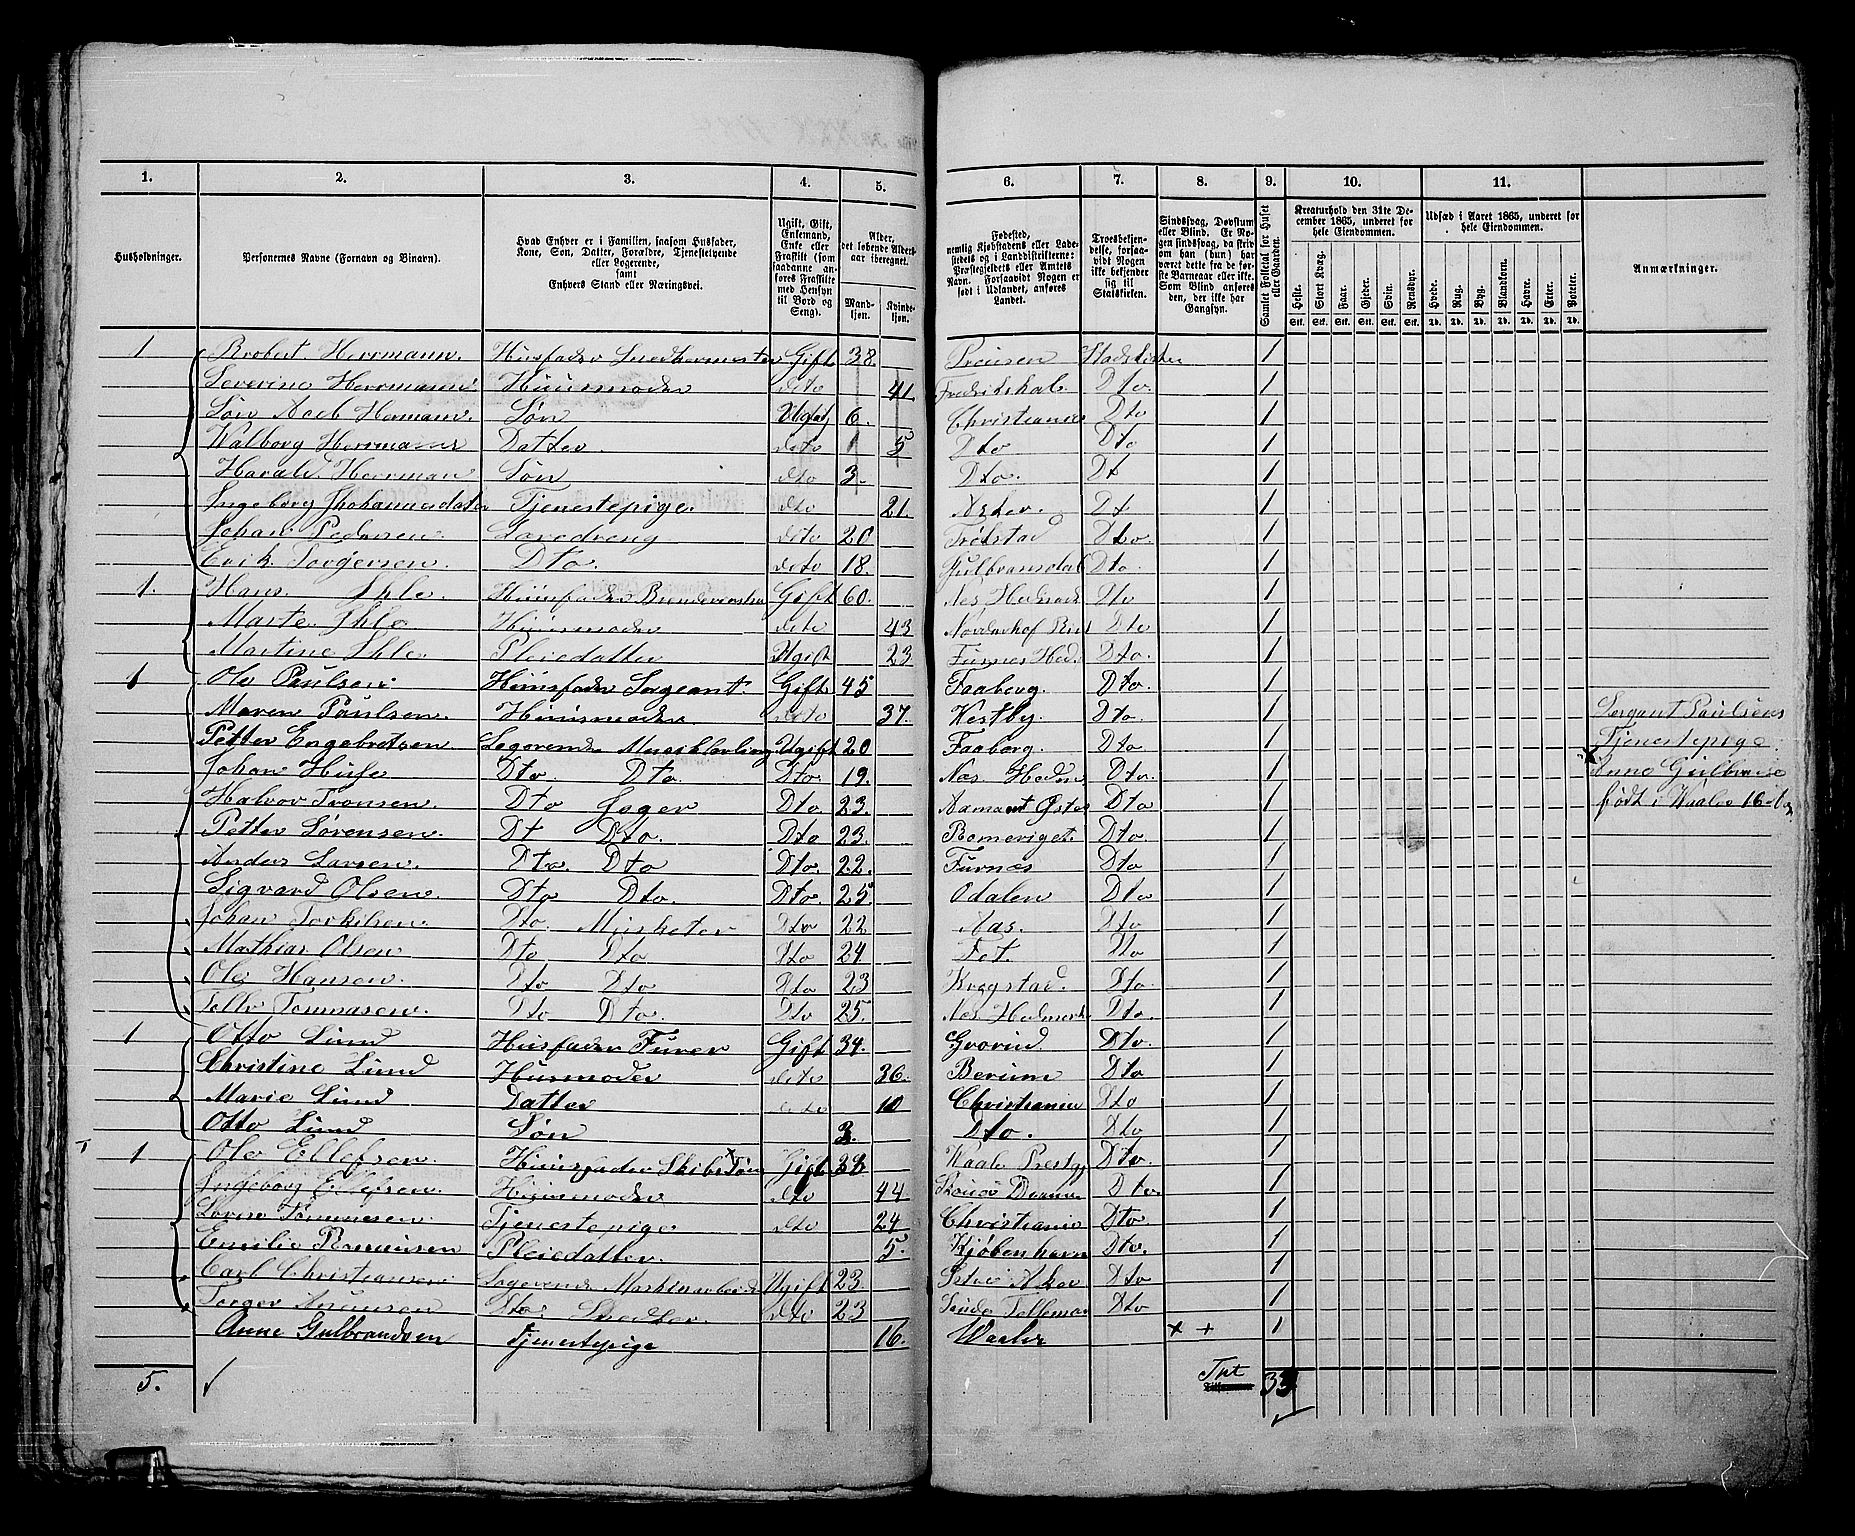 1. 2. 3. 4. 5. 6. 7. 8. 9. 10. 11.
Husholdninger. Personernes Navne (Fornavn og Binavn). Hvad Enhver er i Familien, saasom Husfader, Kone, Søn, Datter, Forældre, Tjenestetyende eller Logerende, samt Enhvers Stand eller Næringsvei. Ugift, Gift, Enkemand, Enke eller Fraskilt (som saadanne anføres Fraskilte med Hensyn til Bord og Seng). Alder, det løbende Aldersaar iberegnet. Mandkjøn. Kvindekjøn. Fødested, nemlig Kjøbstadens eller Ladestedets og i Landdistrikterne: Præstegjeldets eller Amtets Navn. Forsaavidt Nogen er født i Udlandet, anføres Landet. Troesbekjendelse, forsaavidt Nogen ikke bekjender sig til Statskirken. Sindssvag, Døvstum eller Blind. Er Nogen sindssvag, da skrives om han (hun) har været dette fra de første Barneaar eller ikke. Som Blind anføres den, der ikke har Gangsyn. Samlet Folketal for Huset eller Gaarden. Kreaturhold den 31te December 1865, underet for hele Eiendommen. Udsæd i Aaret 1865, underet for hele Eiendommen. Anmærkninger.
Heste. Stort Kvæg. Faar. Gjeder. Svin. Rensdyr. Hvede. Rug. Byg. Blandkorn. Havre. Erter. Poteter.
Stk. Stk. Stk. Stk. Stk. Stk. Td. Td. Td. Td. Td. Td. Td.
1 Robert Herrmann. Husfader Snedkermester Gift 38. Preusen Stadskirken 1
Severine Herrmann Huusmoder deto 41. Fredrikshal. Dto. 1
Søn Axel Hermann. Søn Ugift 6. Christiania Dto 1
Walborg Herrmann Datter. deto 5 Dto Dto 1
Harald Herrman Søn dto 3. Dto. Dt 1
Ingeborg Johannesdatter Tjenestepige. dto 21. Asker. Dt 1
Johan Pedersen Læredreng deto 20 Trøkstad Dto. 1
Erik Torgersen. Dto. deto 18. Gulbransdal Dto. 1
1. Hans Ihle. Huusfader Gift 60. Nes Hedmark Dto 1
Marte Ihle Huusmoder deto 43 Norderhof Dto 1
Martine Ihle. Pleiedatter Ugift 23. Furnes Hed. Dto. 1
1 Ole Paulsen Huusfader Sergeant. Gift 45 Faaberg. Dto. 1
Maren Paulsen. Huusmoder deto 37. Vestby. Dto. 1 Sergant Paulsens
Petter Engebretsen Logerende Ugift 20 Faaberg. Dto. 1 Tjenestepige
Johan Huse Dto Dto Dto 19. Nes. Hedm Dto. 1 x Anne Gulbranse
Halvor Tronsen. Dto Jæger Dto 23. Dto 1 født i Vaaler 16 Aar
Petter Sørensen. Dt Dto. Dto 23. Romeriget. Dto. 1
Anders Larsen. Dto. Dto Dto. 22. Furnes Dto 1
Sigvard Olsen. Dto Dto. Dto. 25. Odalen Dto 1
Johan Torkilsen. Dto. Musketer Dto 22 Aas. Dto 1
Mathias Olsen Dto Dto Dto 24 Fet. Dto 1
Ole Hansen. Dto Dto Dto 23 Dto. 1
Tommasen. Dto Dto. Dto 25. Nes Hedmark Dto. 1
1 Otto Lund Husfader Furer Gift 34. Grorud Dto. 1
Christine Lund Husmoder deto 36. Berum Dto 1
Marie Lund Datter deto 10 Christiania Dto 1
Otto Lund Søn 3. Dto. Dto 1
1 Ole Ellefsen Huusfader Gift 38 Dto. 1
Ingeborg Ellefsen. Huusmoder dto 44 Dto. 1
Lovise Tommesen. Tjenestepige dto 24 Christiania Dto. 1
Emilie Rasmusen Pleiedatter. 5. Kjøbenhavn Dto. 1
Carl Christiansen Logerende Maskinarbeid Ugift 23. Aker Dto 1
Torger Dto. dto 23 Dto 1
Anne Gulbrandsen Tjenestepige 16. Waaler x + 1
5. Tnt 33